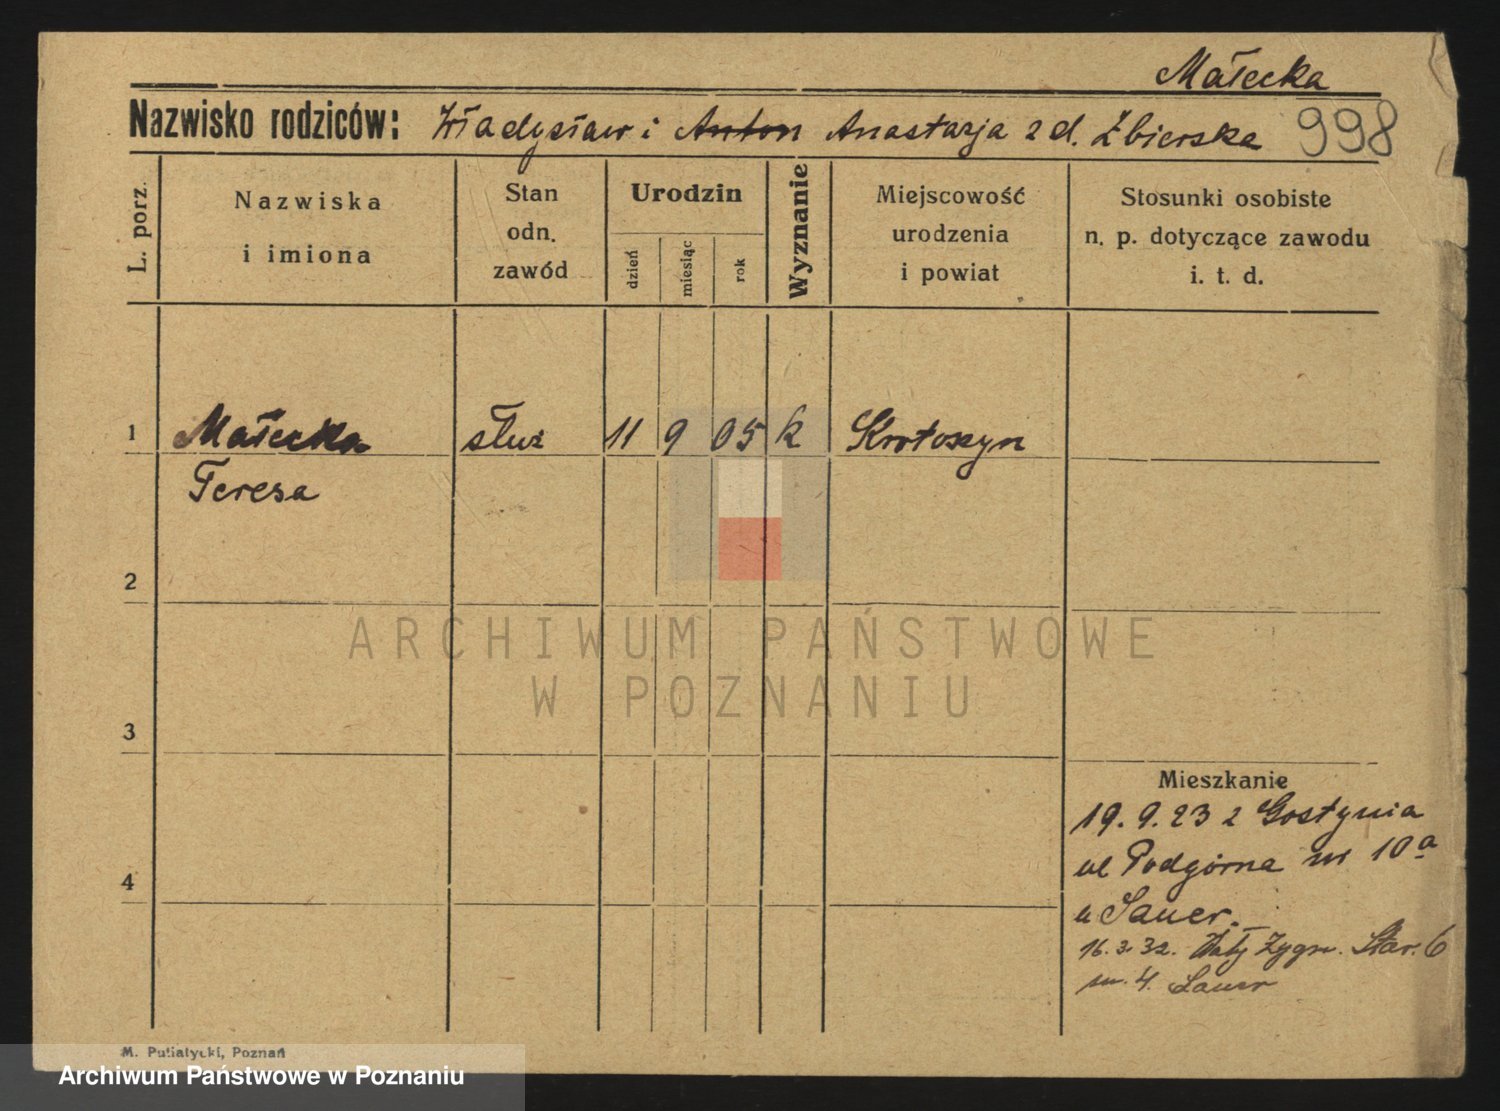 Małecka
Nazwisko rodziców: Władysław i Anton Anastazja z d. Zbierska 998
L. porz.
Nazwiska i imiona
Stan odn. zawód
Urodzin
dzień
miesiąc
rok
Wyznanie
Miejscowość urodzenia i powiat
Stosunki osobiste n. p. dotyczące zawodu i. t. d.
1 Małecka służ 11 9 05 k Krotoszyn
Teresa
2
ARCHIWUM PAŃSTWOWE
W POZNANIU
3
Mieszkanie
19. 9. 23 z Gostynia
ul Podgórna nr 10a
4
u Sauer.
16. 3. 32. Wały Zygm. Star. 6
m. 4. Sauer
M. Putiatycki, Poznań
Archiwum Państwowe w Poznaniu